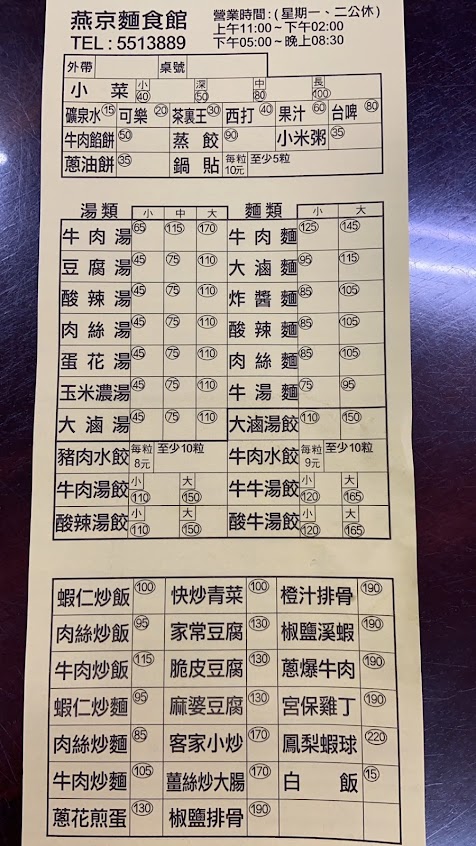 燕京麵食館 營業時間:(星期一、二公休)
TEL:5513889 上午11:00~下午02:00
下午05:00~晚上08:30
外帶 桌號
小菜 小40 深50 中80 長100
礦泉水15 可樂20 茶裏王30 西打40 果汁60 台啤80
牛肉餡餅50 蒸餃90 小米粥35
蔥油餅35 鍋貼 每粒10元 至少5粒
湯類 小 中 大 麵類 小 大
牛肉湯 65 115 170 牛肉麵 125 145
豆腐湯 45 75 110 大滷麵 95 115
酸辣湯 45 75 110 炸醬麵 85 105
肉絲湯 45 75 110 酸辣麵 85 105
蛋花湯 45 75 110 肉絲麵 85 105
玉米濃湯 45 75 110 牛湯麵 75 95
大滷湯 45 75 110 大滷湯餃 110 150
豬肉水餃 每粒8元 至少10粒 牛肉水餃 每粒9元 至少10粒
牛肉湯餃 小110 大150 牛牛湯餃 小120 大165
酸辣湯餃 小110 大150 酸牛湯餃 小120 大165
蝦仁炒飯 100 快炒青菜 100 橙汁排骨 190
肉絲炒飯 95 家常豆腐 130 椒鹽溪蝦 190
牛肉炒飯 115 脆皮豆腐 130 蔥爆牛肉 190
蝦仁炒麵 95 麻婆豆腐 130 宮保雞丁 190
肉絲炒麵 85 客家小炒 170 鳳梨蝦球 220
牛肉炒麵 105 薑絲炒大腸 170 白飯 15
蔥花煎蛋 130 椒鹽排骨 190